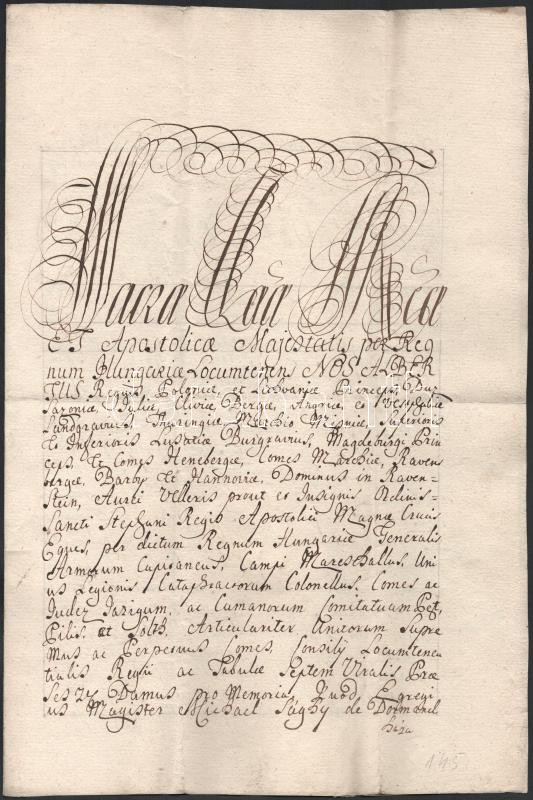 Sacra Caã Rêa
ET Apostolicæ Majestatis per Reg
num Hungariæ Locumtenens NOS ALBER
TUS Regius Poloniæ et Lithvaniæ Princeps, Dux
Saxoniæ, Juliæ Cliviæ Bergæ, Angriæ et Vestphaliæ
Landgravius Thuringiæ Marchio Misniæ, Superioris
et Inferioris Lusatiæ Burgravius, Magdeburgi Prin
ceps, et Comes Henebergæ, Comes Marchiæ, Ravens
bergæ, Barby et Hannoviæ, Dominus in Raven-
stein, Aurei Velleris prout et Insignis Ordinis-
Sancti Stephani Regis Apostolici Magnæ Crucis
Eques, per dictum Regnum Hungariæ Generalis
Armorum Capitaneus, Campi Mareschallus, Uni
us Legionis Cataphractorum Colonellus, Comes ac
Judex Jazigum, ac Cumanorum Comitatuum Pest,
Pilis, et Solth, Articulariter Unitorum Supre
mus ac Perpetuus Comes, Consilij Locumtenen
tialis Regii ac Tabulæ Septem Viralis Præ
ses Damus pro Memoria, Quod Egregi
us Magister Michael Sághy de Dormánd
háza
145